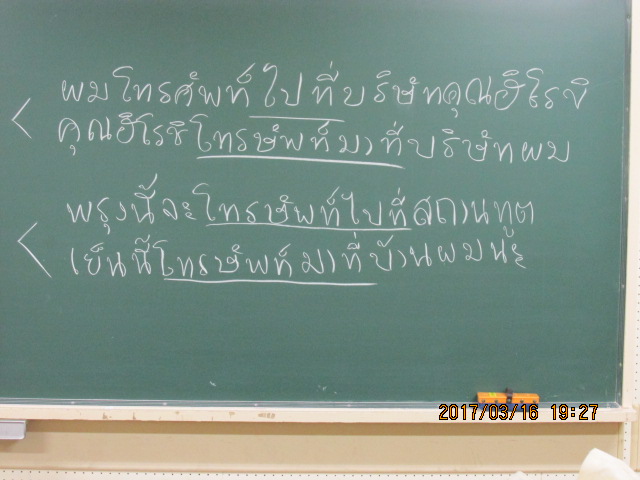 ผมโทรศัพท์ไปที่บริษัทคุณฮิโรชิ
คุณฮิโรชิโทรษัพท์มาที่บริษัทผม
พรุงนี้จะโทรษัพท์ไปที่สถานทูต
เย็นนี้โทรษัพท์มาที่บ้านผมนะ
2017/03/16 19:27